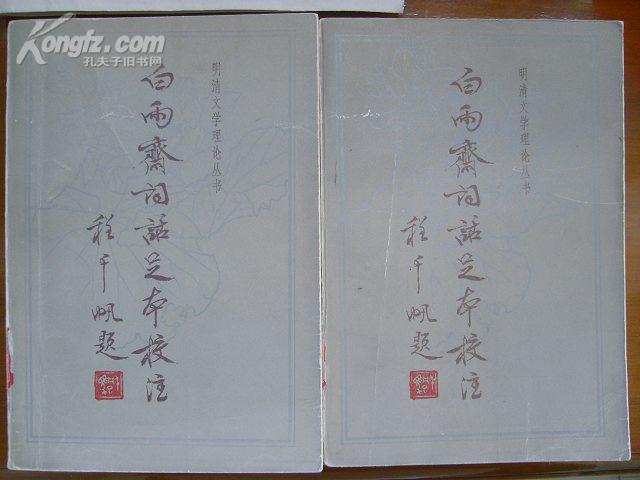 Kongfz.com
孔夫子旧书网
明清文学理论丛书
白雨齋词話足本校注
程千帆题
明清文学理论丛书
白雨齋词話足本校注
程千帆题